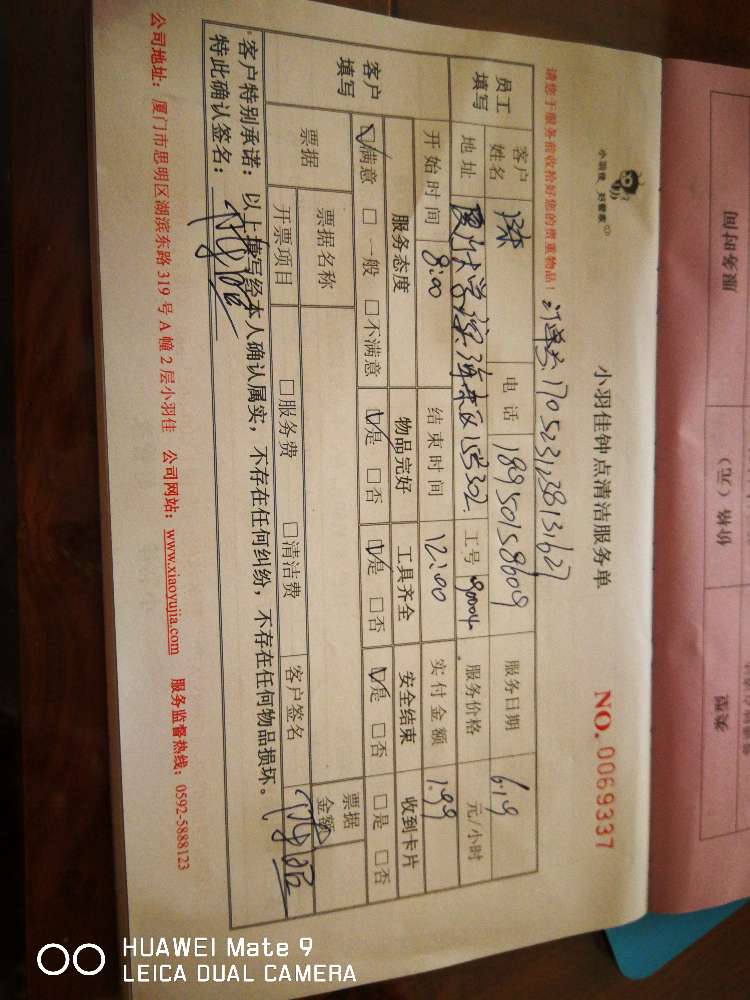 小羽佳 好管家
小羽佳钟点清洁服务单
NO. 0069337
请您于服务前收拾好您的贵重物品！
订单号 170523123813627
员工填写
客户姓名
电话 18950158609
服务日期 6.19
地址 厦门大学
东区 302
工号 90004
服务价格 元/小时
开始时间 8:00
结束时间 12:00
实付金额 1.99
客户填写
服务态度 物品完好 工具齐全 安全结束 收到卡片
☑满意 □一般 □不满意 ☑是 □否 ☑是 □否 ☑是 □否 □是 □否
票据
票据名称
票据金额
开票项目 □服务费 □清洁费 客户签名
客户特别承诺：以上填写经本人确认属实，不存在任何纠纷，不存在任何物品损坏。
特此确认签名：
公司地址：厦门市思明区湖滨东路 319 号 A 幢 2 层小羽佳 公司网站：www.xiaoyujia.com 服务监督热线：0592-5888123
服务时间
价格（元）
类型
HUAWEI Mate 9
LEICA DUAL CAMERA